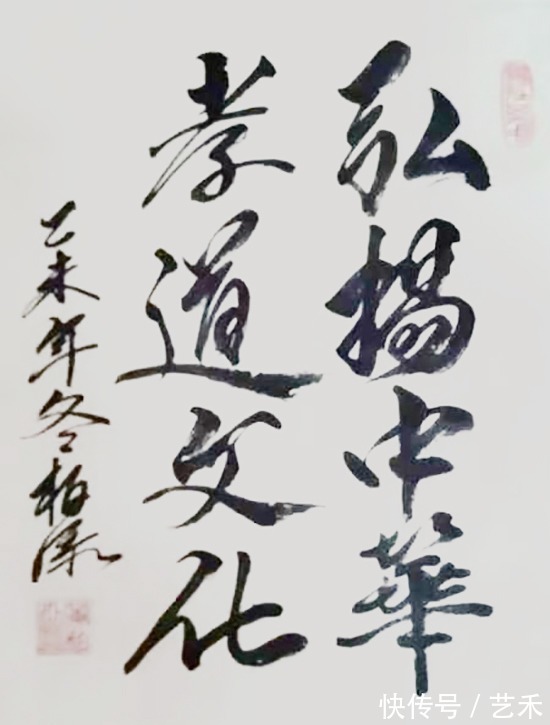 弘揚中華
孝道文化
乙未年冬柏
快传号/艺禾